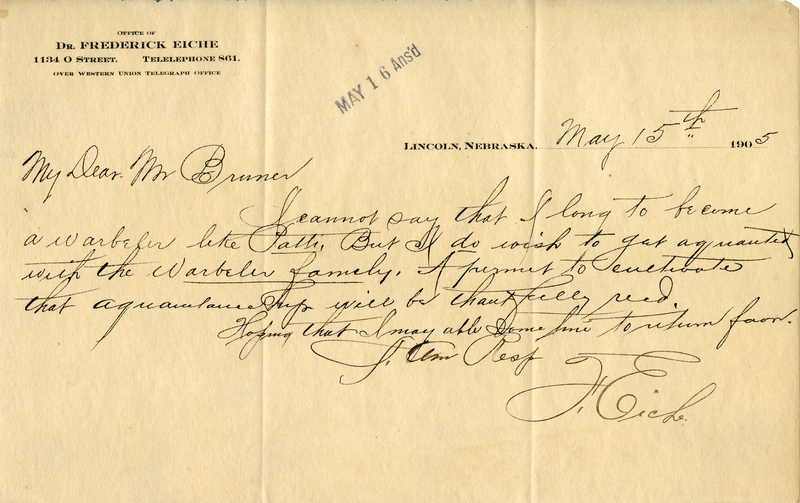 OFFICE OF
DR. FREDERICK EICHE
1134 O STREET. TELELEPHONE 861.
OVER WESTERN UNION TELEGRAPH OFFICE
MAY 16 Ans'd
LINCOLN, NEBRASKA, May 15th 1905
My Dear Mr Bruner
I cannot say that I long to become
a warbeler like Patti. But I do wish to get aquanted
with the Warbeler family. A permit to cultivate
that aquaintance ship will be thankfully recd.
Hoping that I may able Some time to return favor.
I Am Resp
F. Eiche